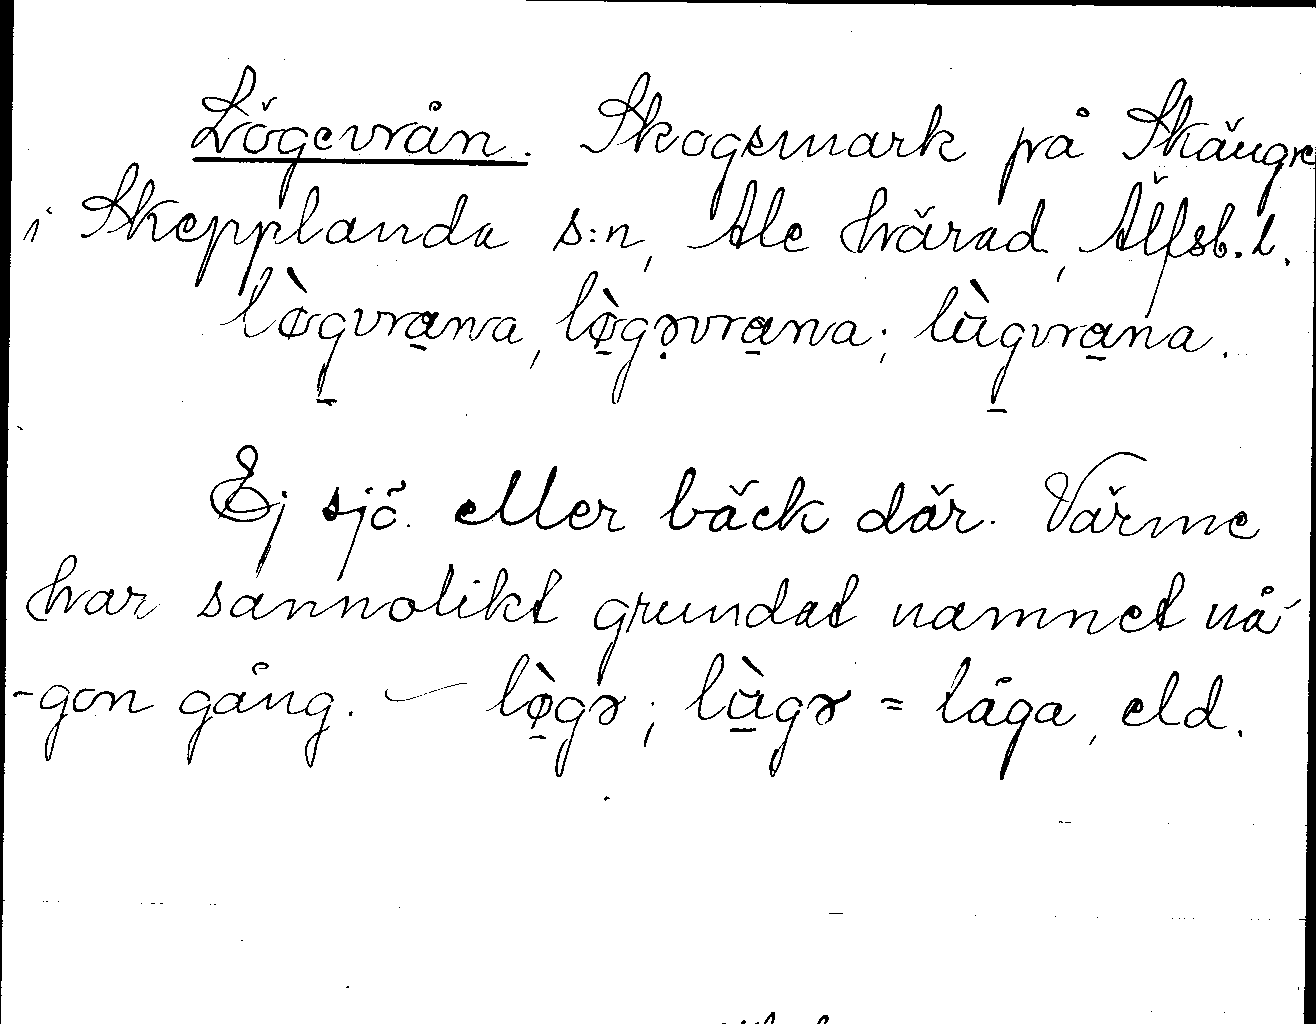 Lögevrån. Skogsmark på Skäugre
i Skepplanda s:n, Ale härad, Älfsb. l.
lø̀gvrana, lø̀gəvrana; lùgvrana.
Ej sjö eller bäck där. Värme
har sannolikt grundat namnet nå-
-gon gång. – lø̀gə; lùgə = låga, eld.